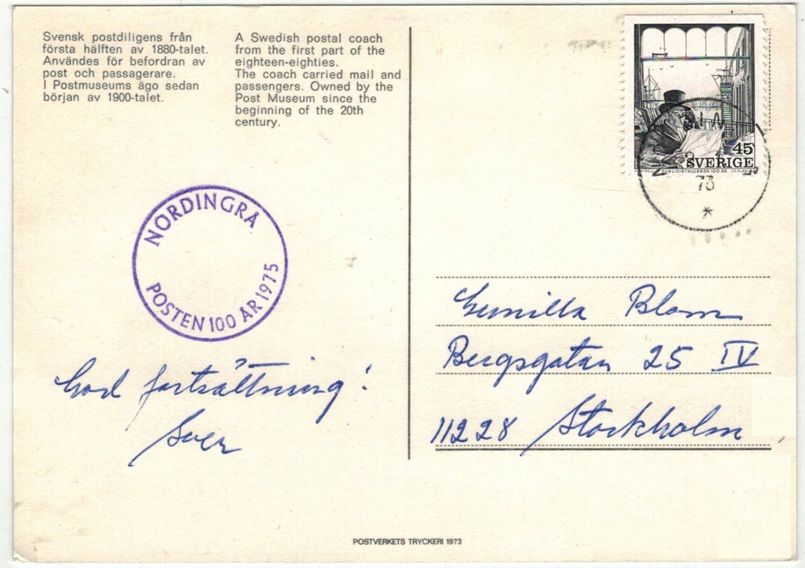 Svensk postdiligens från
första hälften av 1880-talet.
Användes för befordran av
post och passagerare.
I Postmuseums ägo sedan
början av 1900-talet.
A Swedish postal coach
from the first part of the
eighteen-eighties.
The coach carried mail and
passengers. Owned by the
Post Museum since the
beginning of the 20th
century.
45
SVERIGE
PUBLICISTKLUBBEN 100 ÅR
*
NORDINGRÅ
POSTEN 100 ÅR 1975
God fortsättning!
Gunilla Blom
Bergsgatan 25 IV
11228 Stockholm
POSTVERKETS TRYCKERI 1973